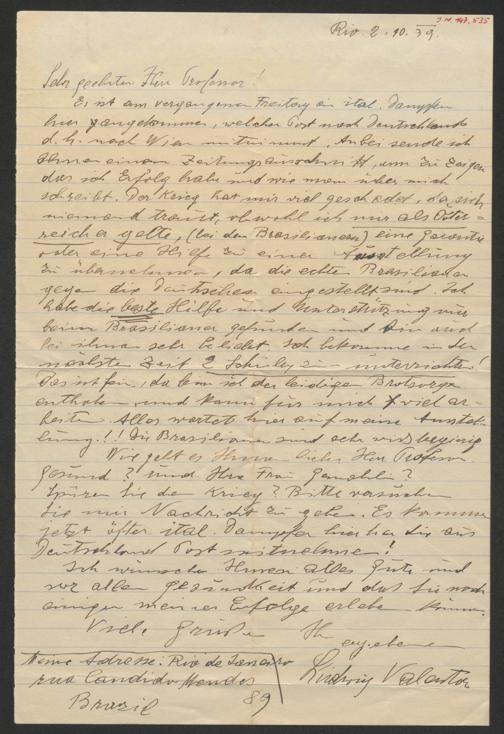 J.N. 147.535
Rio 2.10.39.
Sehr geehrter Herr Professor!
Es ist am vergangenen Freitag ein ital. Dampfer
hier angekommen, welcher Post nach Deutschland
d.h. nach Wien mitnimmt. Anbei sende ich
Ihnen einen Zeitungsausschnitt, um zu zeigen
das ich Erfolg habe und wie man über mich
schreibt. Der Krieg hat mir viel geschadet, da sich
niemand traut, obwohl ich nur als Öster-
reicher gelte, (bei den Brasilianern) eine Garantie
oder eine Hilfe zu einer Ausstellung
zu übernehmen, da die echten Brasilianer
gegen die Deutschen eingestellt sind. Ich
habe die beste Hilfe und Unterstützung nur
beim Brasilianer gefunden und bin auch
bei ihnen sehr beliebt. Ich bekomme in der
nächsten Zeit 2 Schüler zu unterrichten!
Das ist fein, da bin ich der leidigen Brotsorge
enthoben und kann für mich viel ar-
beiten. Alles wartet hier auf meine Ausstel-
lung!! Die Brasilianer sind sehr wissbegierig
Wie geht es Ihnen lieber Herr Professor
gesund? und Ihre Frau Gemahlin?
Spüren Sie den Krieg? Bitte versuchen
Sie mir Nachricht zu geben. Es kommen
jetzt öfter ital. Dampfer hierher die aus
Deutschland Post mitnehmen!
Ich wünsche Ihnen alles Gute und
vor allem Gesundheit und das Sie noch
einigen meiner Erfolge erleben können.
Viele Grüße Ihr
ergebener
Meine Adresse: Rio de Janeiro
rua Candido Mendes
89
Brazil
Ludwig